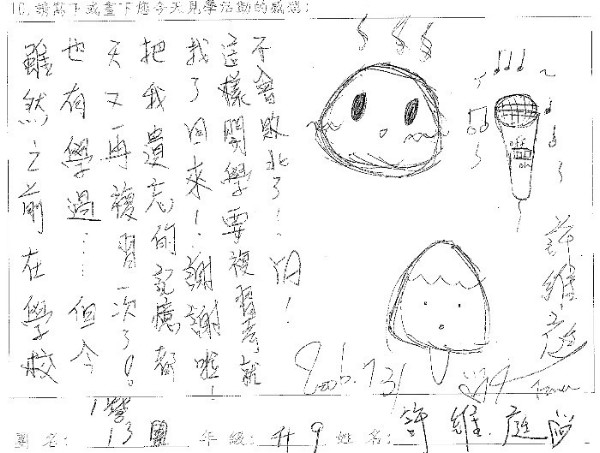 10.請寫下或畫下您今天見學活動的感想:
雖然之前在學校
也有學過……但今
天又再複習一次了。
把我遺忘的記憶都
找了回來！謝謝啦！
這樣開學要複習考就
不會敗北了！YA！
許維庭
署名:
1營
13團
年級:
升9
姓名:
許維庭